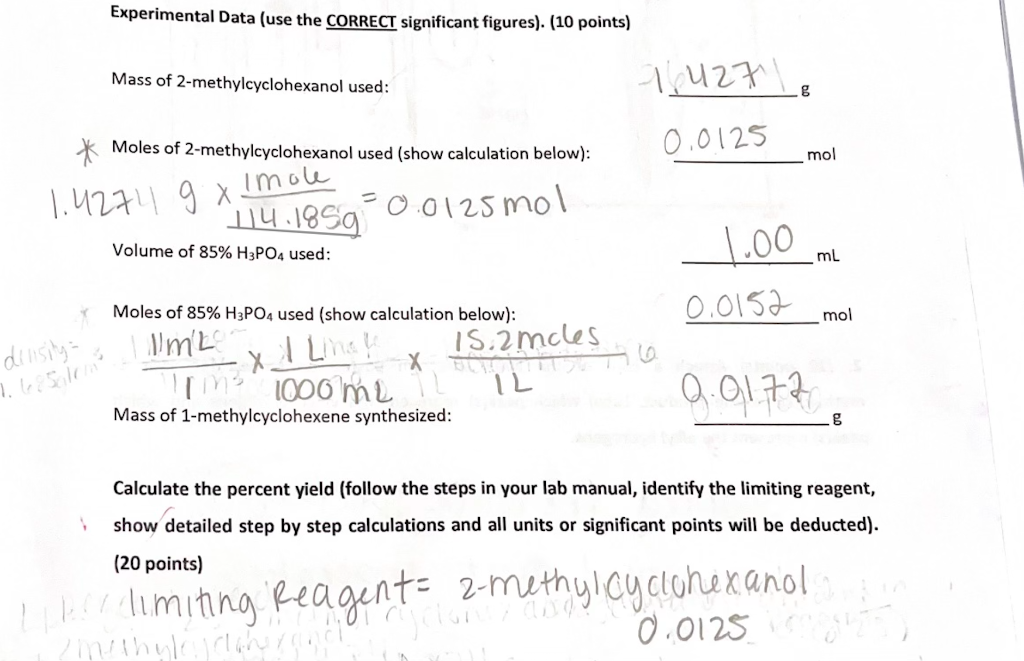 Experimental Data (use the CORRECT significant figures). (10 points)
Mass of 2-methylcyclohexanol used: g
* Moles of 2-methylcyclohexanol used (show calculation below): 0.0125 mol
g x 1mole = 0.0125 mol
114.185g
Volume of 85% H₃PO₄ used: 1.00 mL
Moles of 85% H₃PO₄ used (show calculation below): 0.0152 mol
density=
x 1 L x 15.2moles
1000 mL 1L
Mass of 1-methylcyclohexene synthesized: g
Calculate the percent yield (follow the steps in your lab manual, identify the limiting reagent,
show detailed step by step calculations and all units or significant points will be deducted).
(20 points)
limiting Reagent= 2-methylcyclohexanol
0.0125